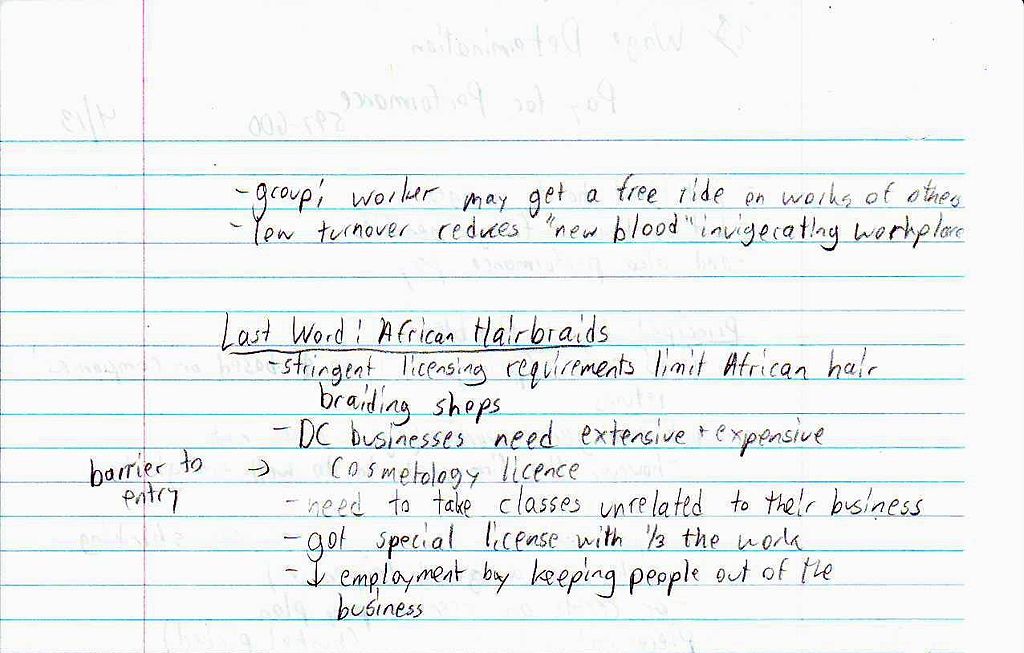 - group; worker may get a free ride on works of others
- low turnover reduces "new blood" invigerating workplace
Last Word: African Hairbraids
- stringent licensing requirements limit African hair
braiding shops
- DC businesses need extensive + expensive
barrier to → Cosmetology licence
entry
- need to take classes unrelated to their business
- got special license with 1/3 the work
- ↓ employment by keeping people out of the
business